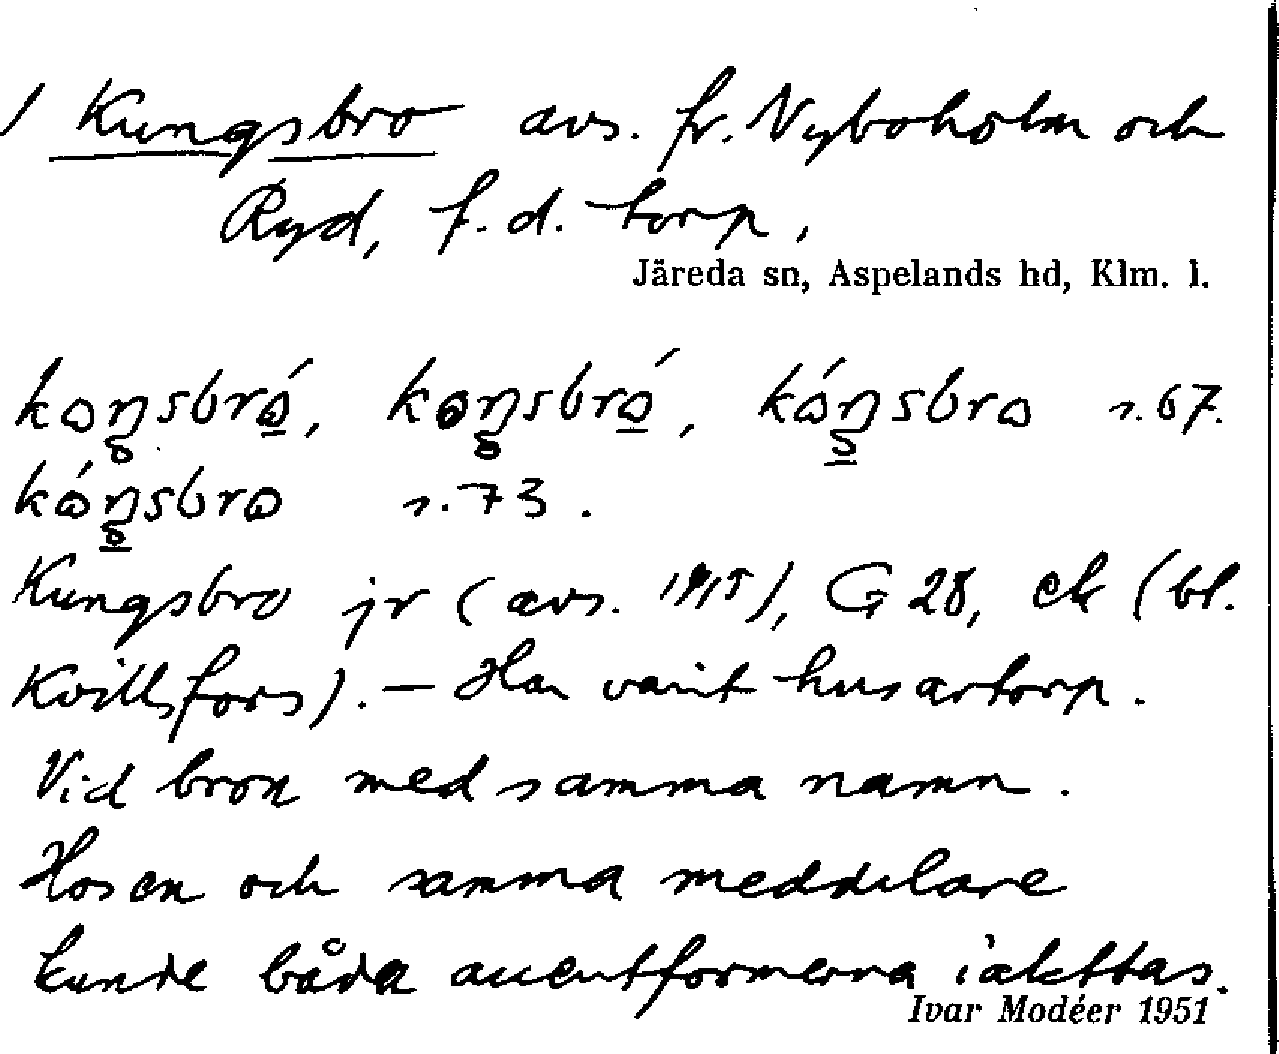 / Kungsbro avs. fr. Nyboholm och
Ryd, f.d. torp,
Järeda sn, Aspelands hd, Klm. l.
s. 67.
s. 73.
Kungsbro jr (avs. 1915), G 28, ek (bl.
Kvillsfors). – Har varit husartorp.
Vid bron med samma namn.
Hos en och samma meddelare
kunde båda accentformerna iakttas.
Ivar Modéer 1951